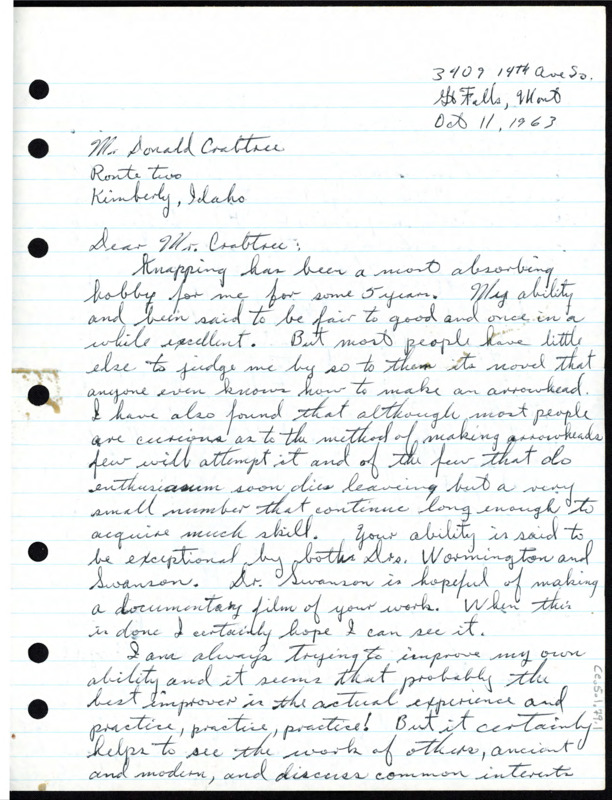 3409 14th Ave So.
Gt Falls, Mont
Oct 11, 1963
Mr Donald Crabtree
Route two
Kimberly, Idaho
Dear Mr. Crabtree:
Knapping has been a most absorbing
hobby for me for some 5 years. My ability
and been said to be fair to good and once in a
while excellent. But most people have little
else to judge me by so to them its novel that
anyone even knows how to make an arrowhead.
I have also found that although most people
are curious as to the method of making arrowheads
few will attempt it and of the few that do
enthusiasum soon dies leaving but a very
small number that continue long enough to
acquire much skill. Your ability is said to
be exceptional by both Drs. Wormington and
Swanson. Dr. Swanson is hopeful of making
a documentary film of your work. When this
is done I certainly hope I can see it.
I am always trying to improve my own
ability and it seems that probably the
best improver is the actual experience and
practice, practice, practice! But it certainly
helps to see the work of others, ancient
and modern, and discuss common interests